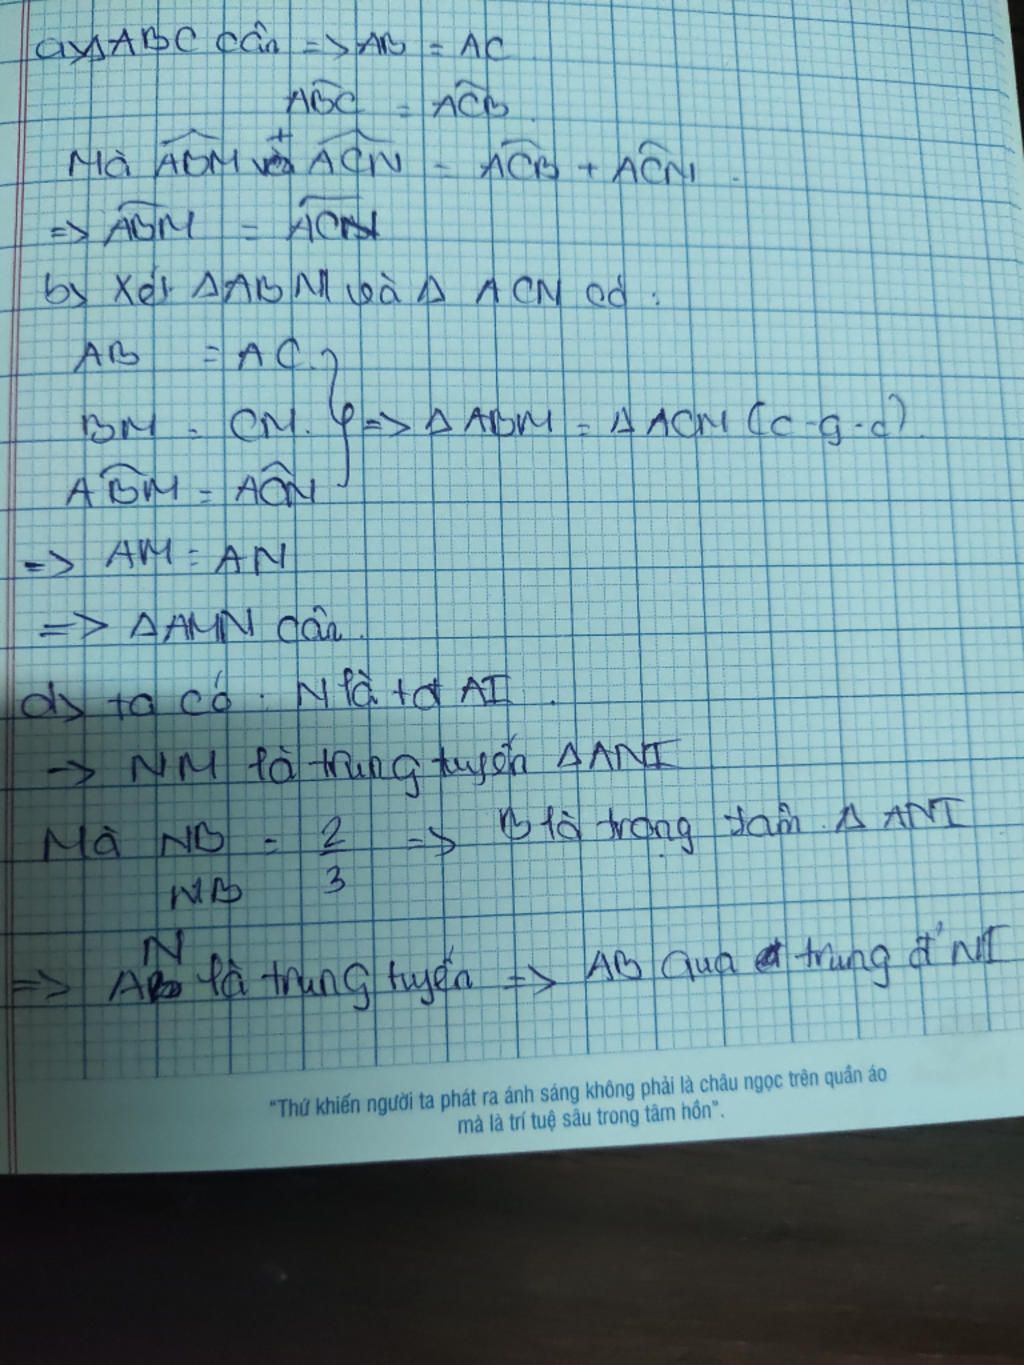 a) ΔABC cân => AB = AC
ABC = ACB.
Mà ABM + ACN = ACB + ACN.
=> ABM = ACN
b) Xét ΔABM và Δ ACN có:
AB = AC.
BM = CN. } => Δ ABM = Δ ACN (c-g-c).
ABM = ACN
=> AM = AN
=> ΔAMN cân.
d) ta có: N là tđ AI.
-> NM là trung tuyến ΔANI
Mà NB = 2 => B là trọng tâm Δ ANI
NB 3
N
=> AB là trung tuyến => AB qua trung đ' NI
"Thứ khiến người ta phát ra ánh sáng không phải là châu ngọc trên quần áo
mà là trí tuệ sâu trong tâm hồn".